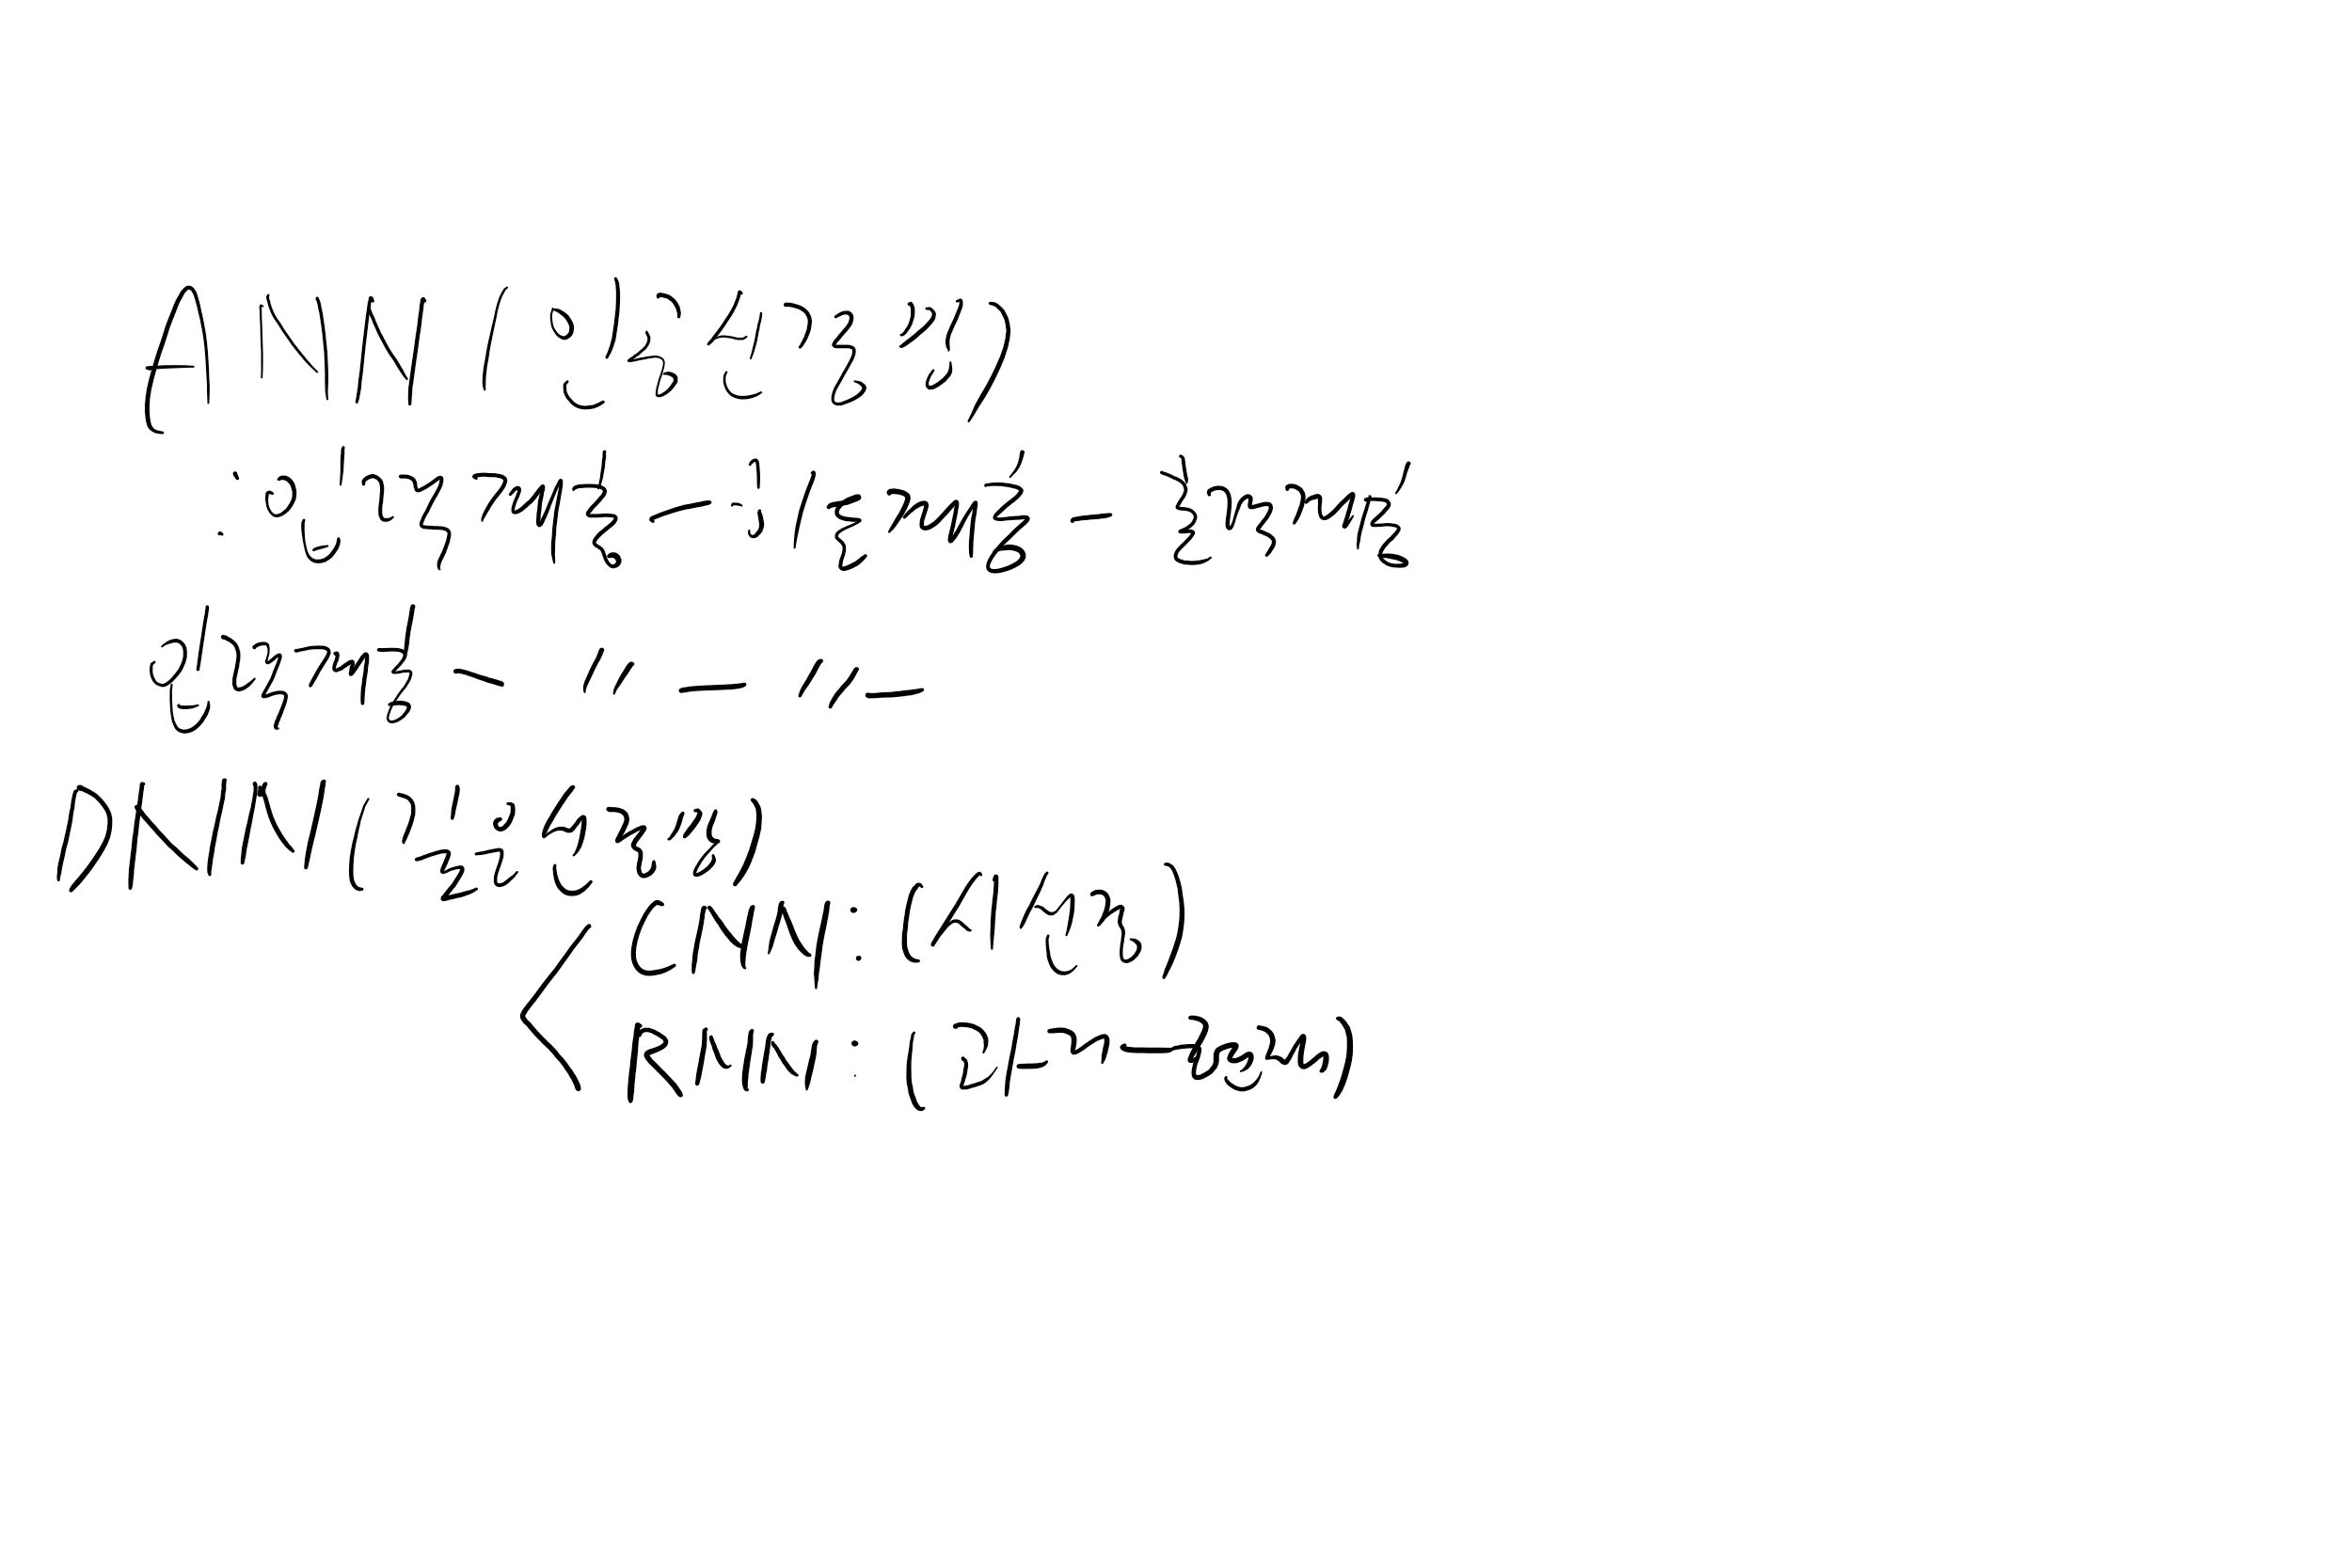 ANN (인공신경망)
: 입력계층 - 은닉계층 - 출력계층
입력계층 - 〃 - 〃 -
DNN (깊은신경망)
CNN : (시신경)
RNN : (과거 - 현재)